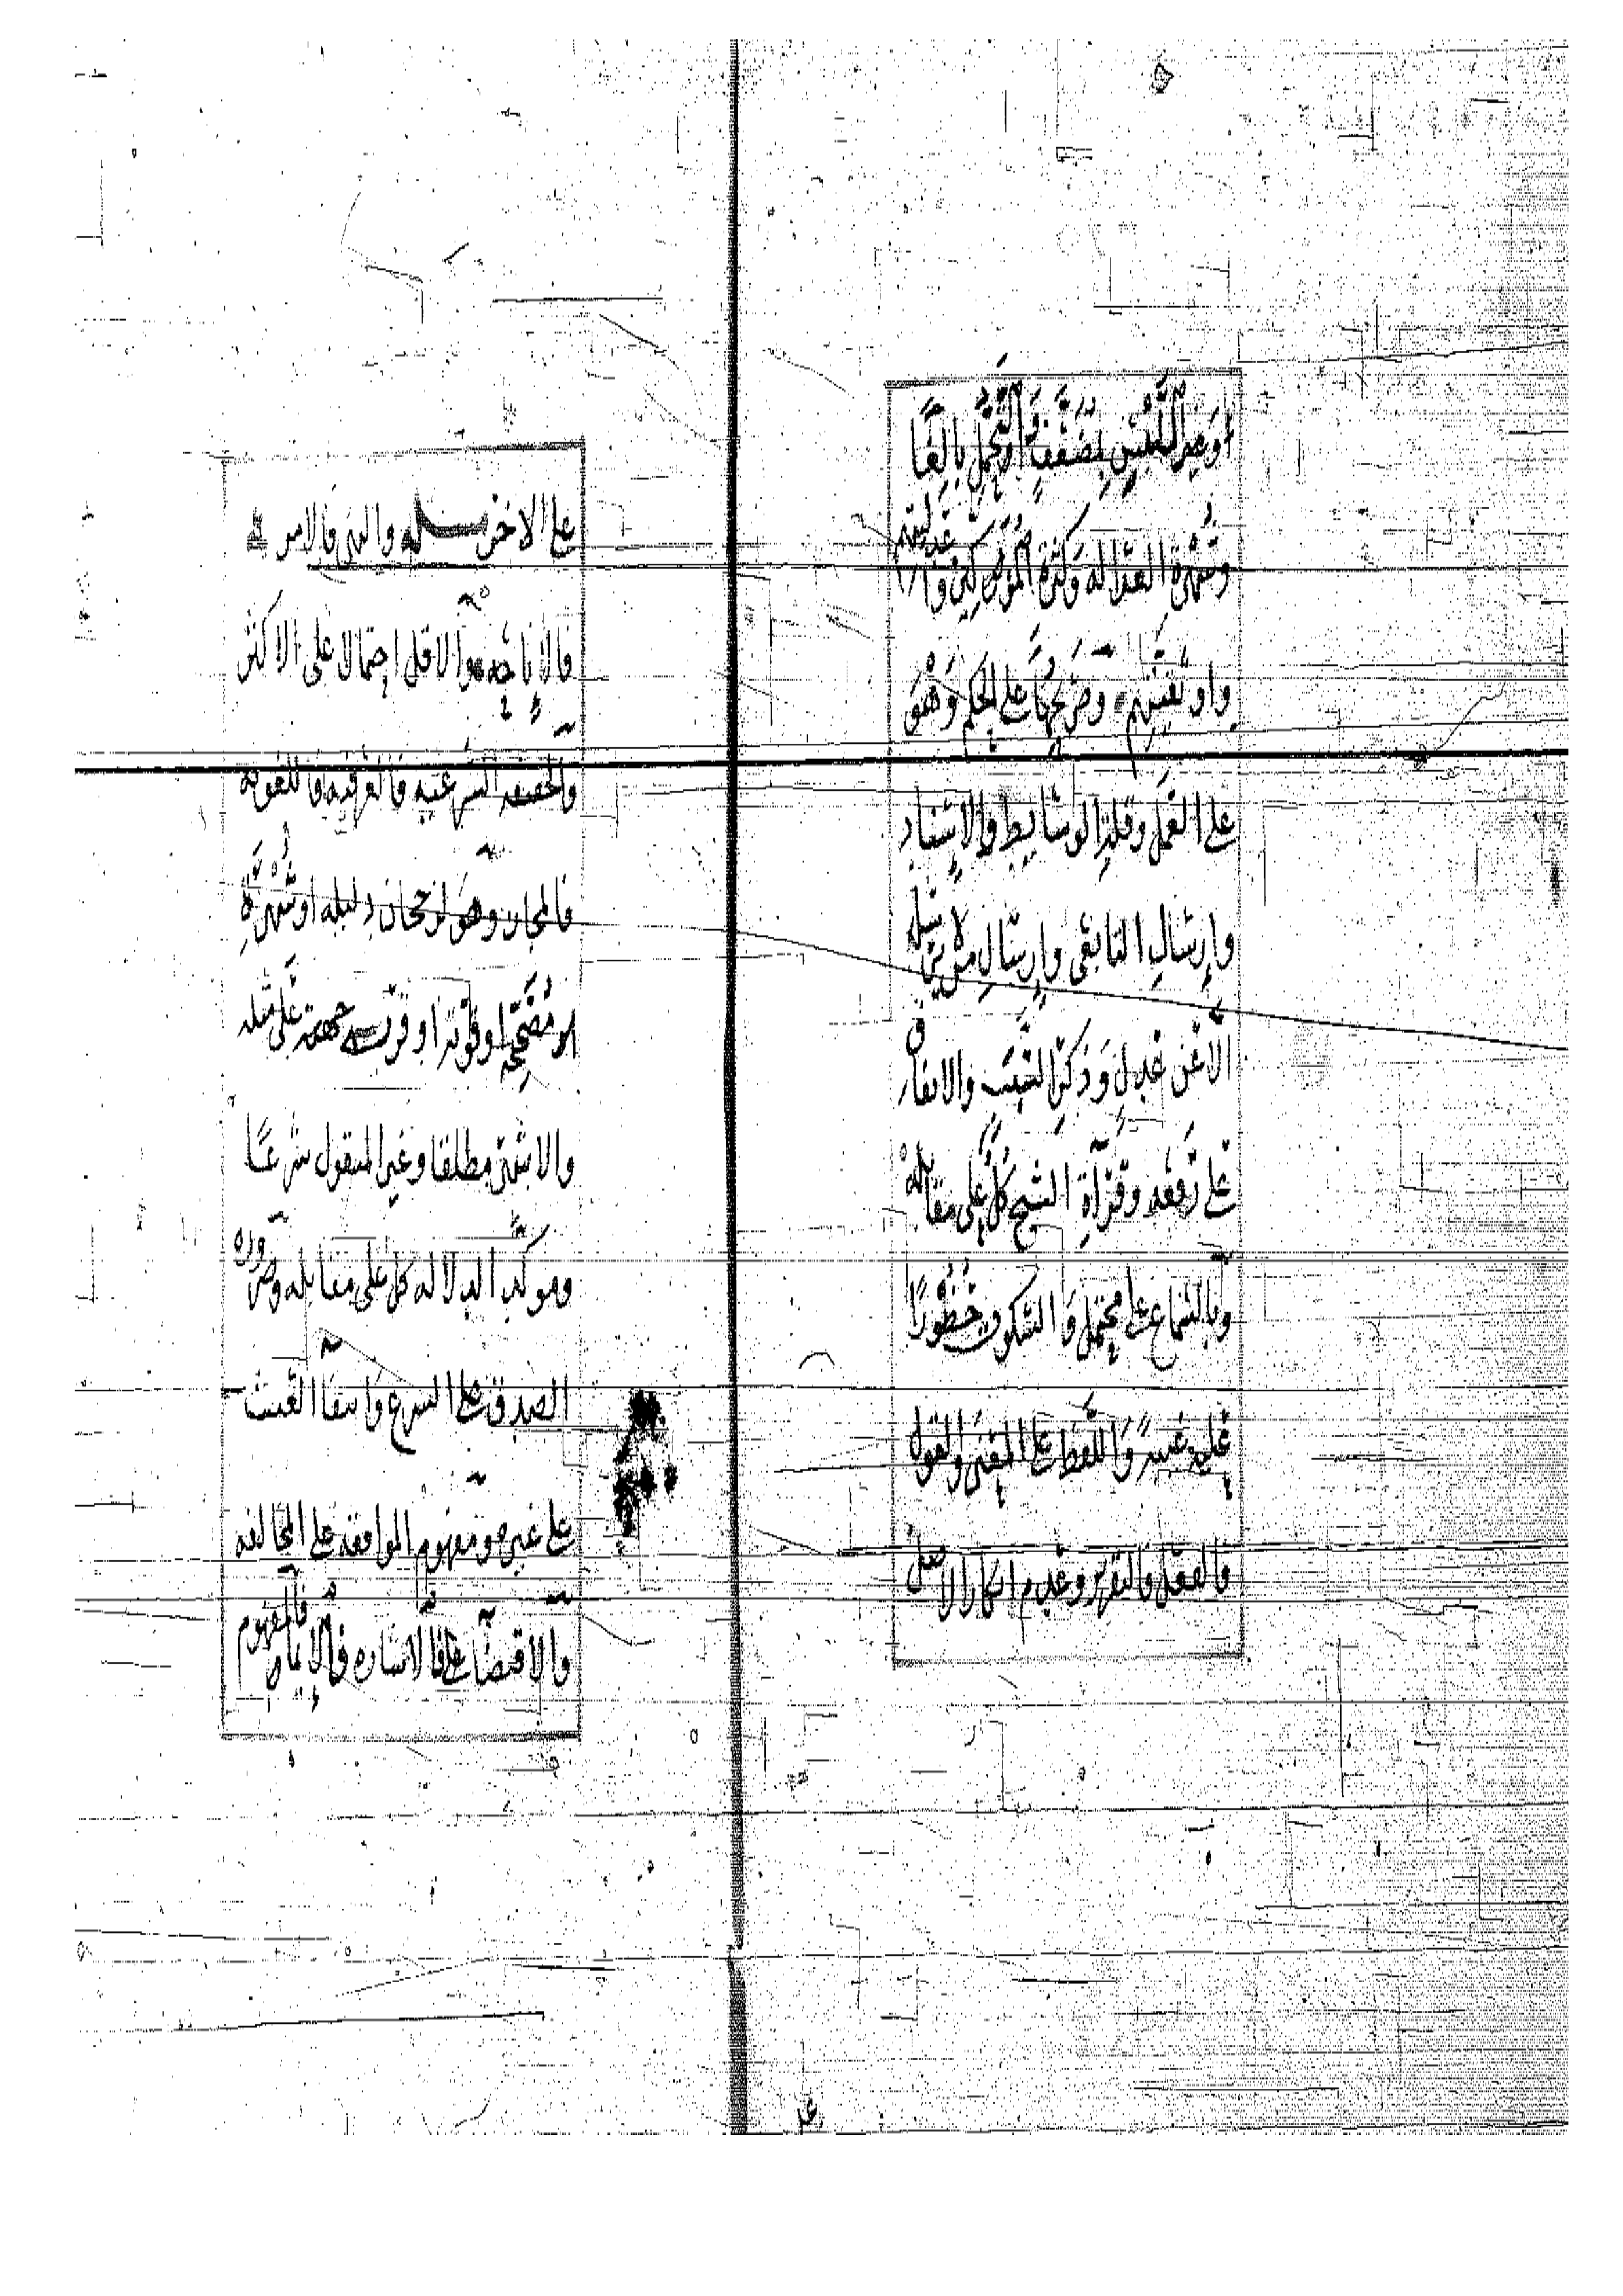 أو غير ملتبس بمضعف والتحمل بالغا
وشهرة العدالة وكثرة المزكين وعدليتهم
واوثقيتهم وصريحها على الحكم وهو
على العمل وقلة الوسائط والاسناد
وإرسال التابعي وإرسال من لا يرسله
الا عن عدل وذكر السبب والاتفاق
على رفعه وقرآة الشيخ كل على مقابله
وبالسماع على محتمل والسكوت حضورا
على غيبة واللفظ على المعنى والقول
فالفعل فالتقرير وعدم انكار الاصل
على الاخر مسله والنهي فالامر
فالاباحه والاقل احتمالا على الاكثر
والحقيقه الشرعيه فالعرفيه فاللغويه
فالمجاز وهو لرجحان دليله او شهرة
مصححه او قوته او قرب جهته على مثله
والاشهر مطلقا وغير المنقول شرعا
وموكد الدلاله كل على مقابله وضروره
الصدق على الشرع وانتفا العبث
على غيره ومفهوم الموافقه على المخالفه
والاقتضا على الاشاره فالإيما فالمفهوم